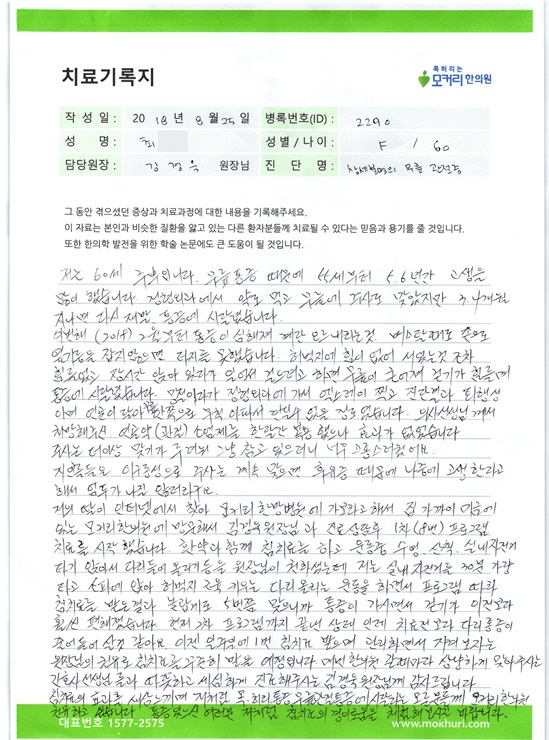 치료기록지
목허리는
모커리한의원
작 성 일 : 2018년 8월 25일 병록번호(ID) : 2290
성 명 : 최 성 별 / 나 이 : F / 60
담당원장 : 김경욱 원장님 진 단 명 : 상세불명의 무릎 관절증
그 동안 겪으셨던 증상과 치료과정에 대한 내용을 기록해주세요.
이 자료는 본인과 비슷한 질환을 앓고 있는 다른 환자분들께 치료될 수 있다는 믿음과 용기를 줄 것입니다.
또한 한의학 발전을 위한 학술 논문에도 큰 도움이 될 것입니다.
저는 60세 주부입니다. 무릎통증 때문에 55세부터 5.6년간 고생을
많이 했습니다. 정형외과에서 약도 먹고 무릎에 주사도 맞았지만 3.4개월
지나면 다시 재발, 통증에 시달렸습니다.
이번해 (2018) 2월부터 통증이 심해져 계단 오르내리는것 버스탈때도 손으로
잡지 않으면 다리를 못했습니다. 허벅지에 힘이 없어 서있는것 조차
힘들었고 장시간 앉아 있다가 일어서 걸으려고 하면 무릎이 걷기가 힘들때
통증에 시달렸습니다. 정형외과에 가서 엑스레이 찍고 진단결과 퇴행성
이며 연골이 닳아 한쪽으로 아파서 수 없을 정도였습니다. 의사선생님께서
처방해주신 소염제는 한달간 먹은 했으나 효과가 없었습니다
주사는 더이상 맞기가 그냥 참고 있으려니 너무 고통스러웠어요.
주사를 계속 맞으면 후유증 때문에 나중에 고생한다고
해서 엄두가 나질 않더라구요.
저의 딸이 인터넷에서 찾아 모커리한방병원에 가보라고 해서 집 가까이
있는 모커리한의원에 방문해서 김경욱원장님과 진료상담후 1차(8번) 프로그램
치료를 시작했습니다. 한약과 함께 침치료를 하고 운동은 수영, 산책, 실내자전거
타기 앉아서 다리들어올리기등을 원장님이 권하셨는데 저는 실내자전거를 30분 가량
타고 쇼파에 앉아 허벅지 근육 키우는 다리올리는 운동을 하면서 프로그램 따라
침치료를 받은결과 놀랍게도 5번쯤 맞으니까 통증이 가시면서 걷기가 이전보다
훨씬 편해졌습니다. 현재 2차 프로그램까지 끝난 상태인데 치료전보다 다리통증이
줄어들어 살것 같아요. 이젠 일주일에 1번 침치료 받으며 관리하면서 지켜보자는
원장님의 권유로 침치료를 꾸준히 받을 예정입니다. 매번 한의원 갈때마다 상냥하게 맞아주시는
간호사선생님들과 따뜻하고 세심하게 진료해주시는 김경욱원장님께 감사드립니다.
침치료의 효과를 새삼느끼며 저처럼 목.허리통증 무릎관절통증에 시달리는 모든분들께 모커리한의원
권유하고 싶습니다. 통증있으신 여러분 저처럼 침치료의 경이로움을 체험해보시길 바랍니다.
대표번호 1577-2575
www.mokhuri.com